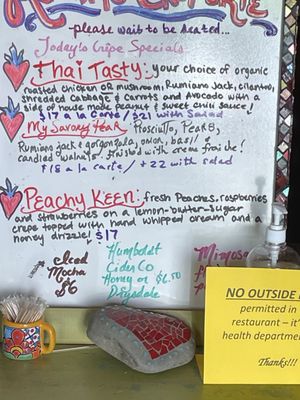 please wait to be seated...
Today's Crêpe Specials
Thai Tasty: your choice of organic
roasted chicken or mushroom, Rumiano Jack, cilantro,
shredded cabbage & carrots and Avocado with a
side of house made peanut & sweet chili sauce!
$17 a la carte / $21 with Salad
My Savory Pear: Prosciutto, PEARS,
Rumiano jack & gorgonzola, onion, basil &
candied walnuts. finished with creme fraiche!
$18 a la carte / $22 with salad
Peachy Keen: fresh Peaches, raspberries
and strawberries on a lemon-butter-sugar
crepe topped with hand whipped cream and a
honey drizzle! $17
Iced
Mocha
$6
Humboldt
Cider Co
Honey or $6.50
Drysdale
Mimosa
NO OUTSIDE
permitted in
restaurant – it's
health departme
Thanks!!!